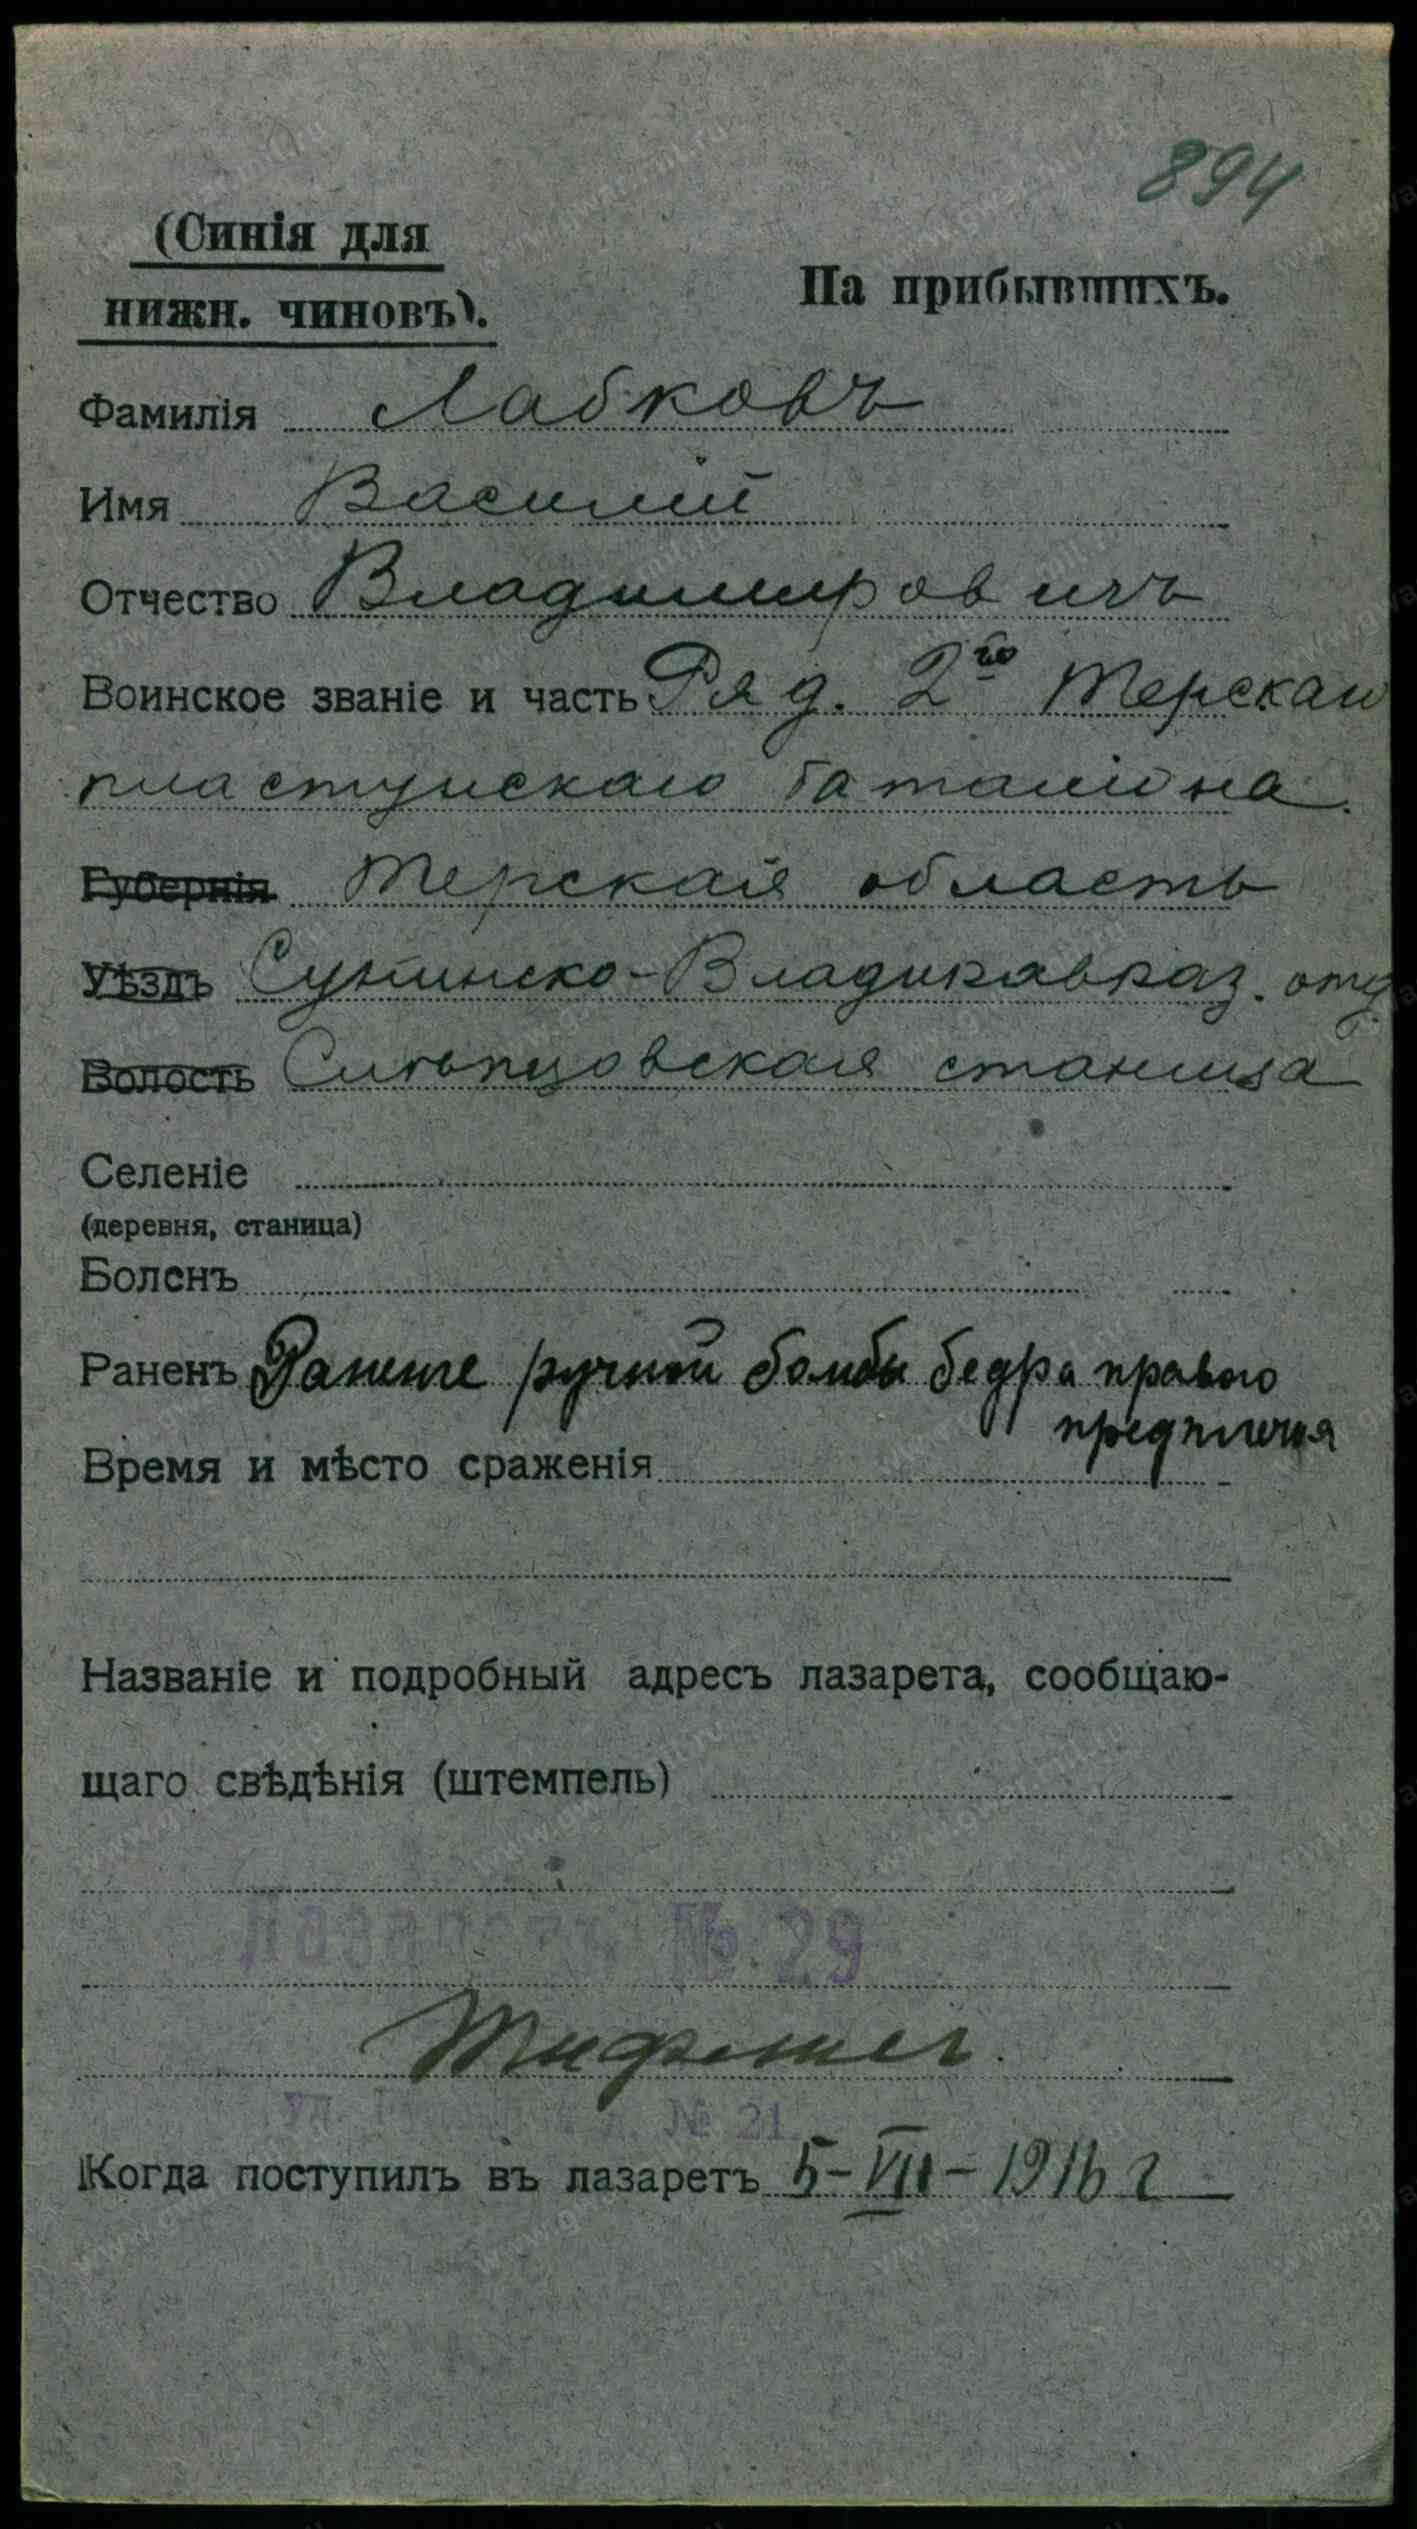 894
(Синія для
нижн. чиновъ).
На прибывшихъ.
Фамилія Лабковъ
Имя Василій
Отчество Владимировичъ
Воинское званіе и часть Ряд. 2го Терскаго
пластунскаго баталіона.
Губернія Терская область
Уѣздъ Сунженско-Владикавказ. отд.
Волость Слѣпцовская станица
Селеніе
(деревня, станица)
Боленъ
Раненъ Раненіе ручной бомбы бедра правого
предплечья
Время и мѣсто сраженія
Названіе и подробный адресъ лазарета, сообщаю-
щаго свѣдѣнія (штемпель)
Лазаретъ № 29
Тифлисъ
Ул. № 21
Когда поступилъ въ лазаретъ 5-VII-1916 г